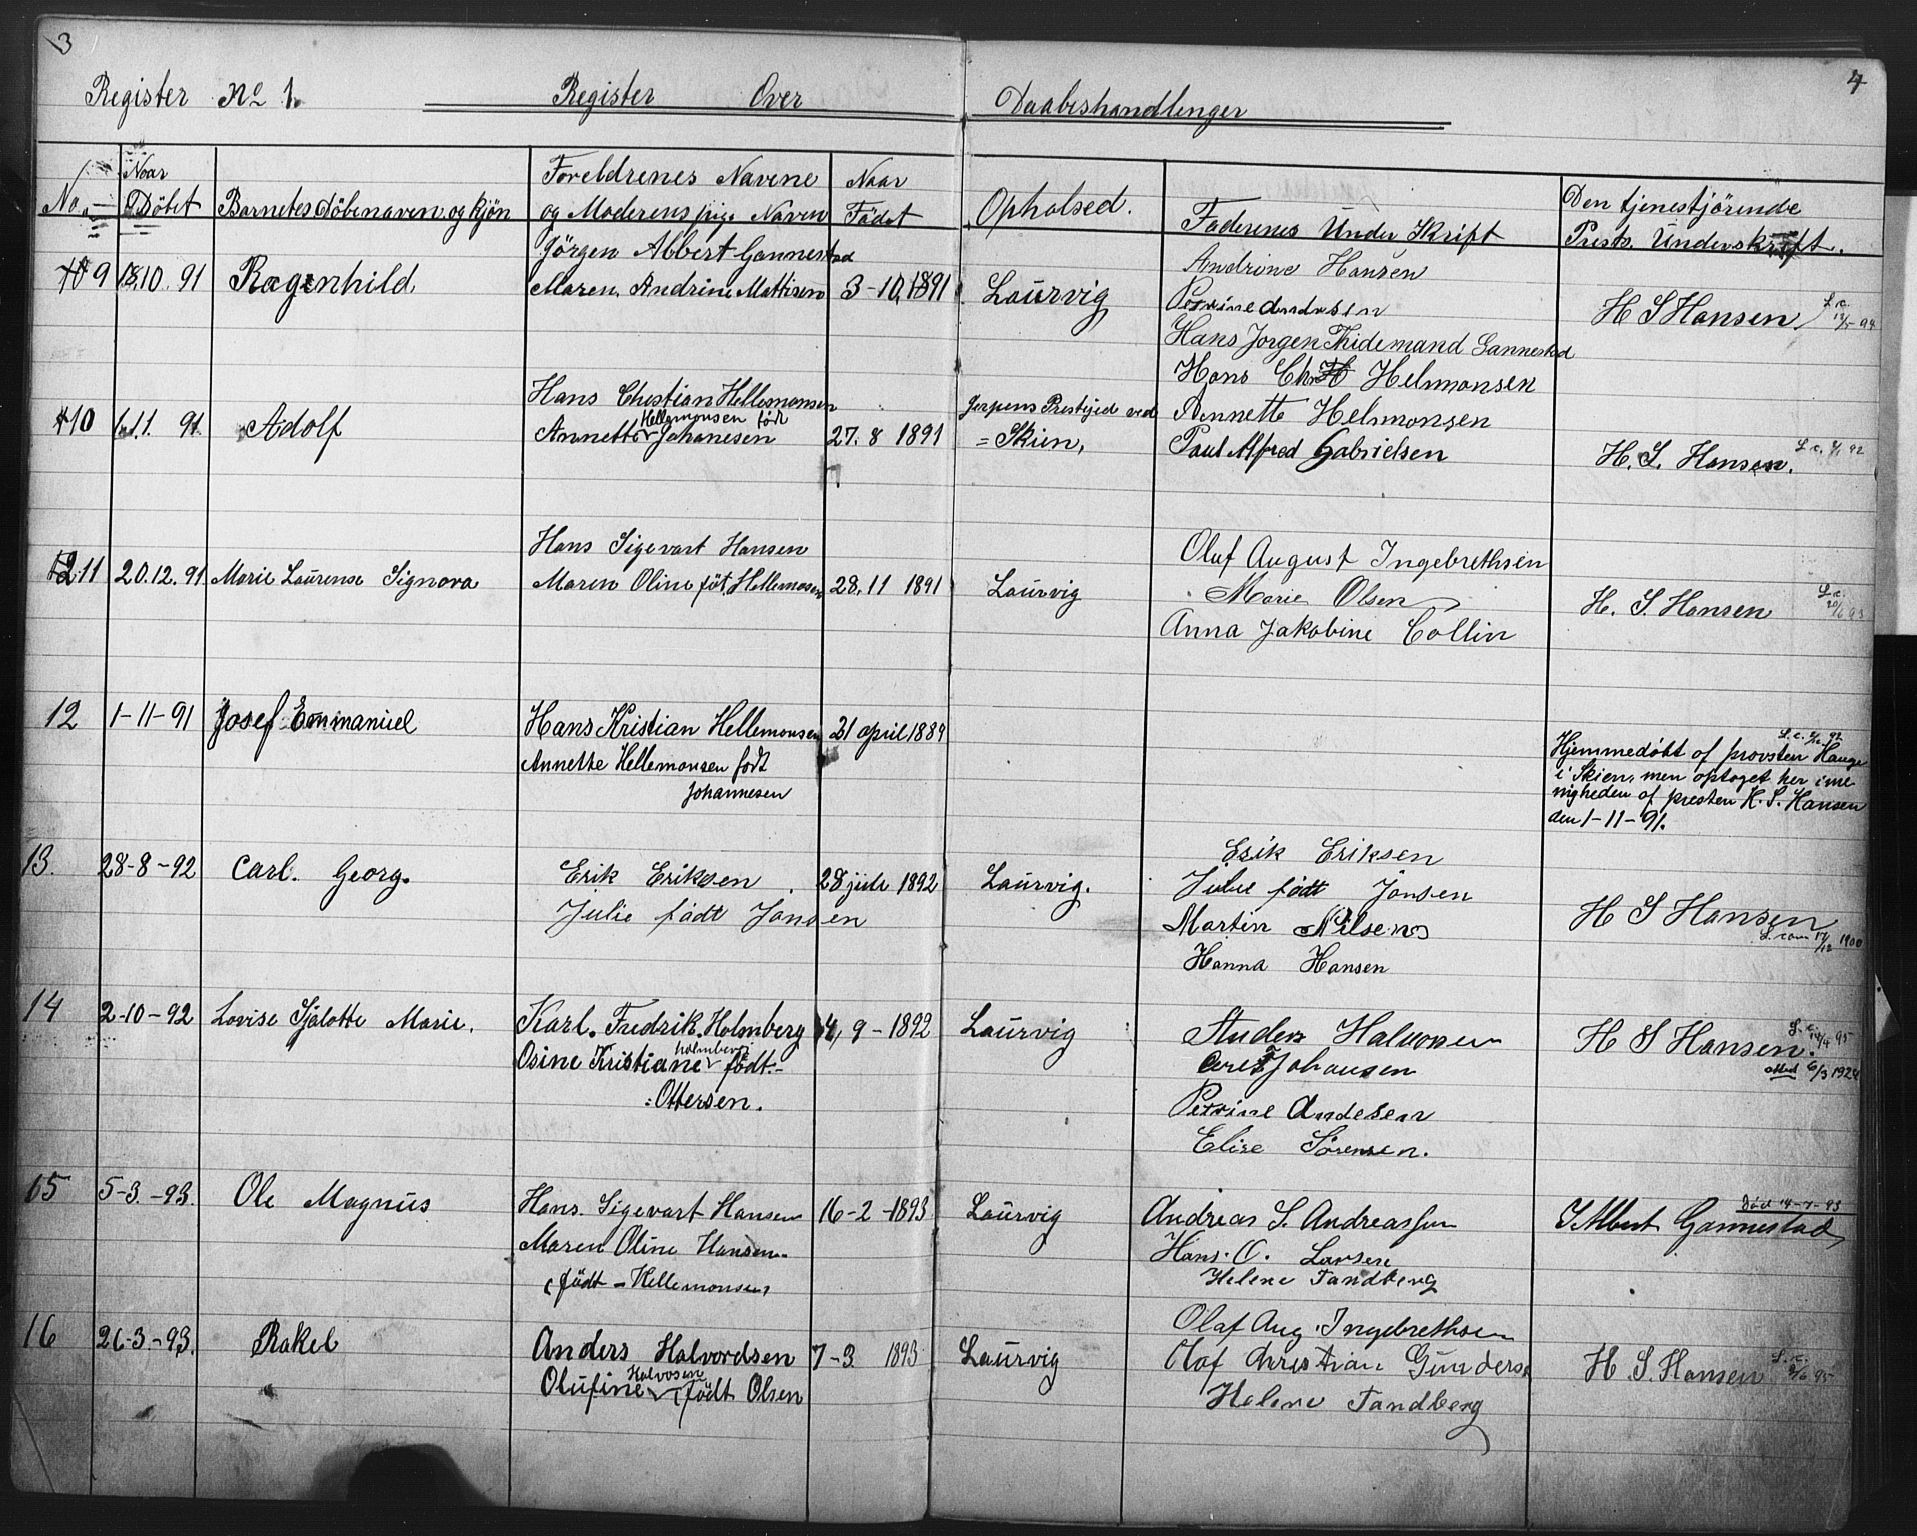 3
4
Register No 1. Register Over Daabshandlinger
No. Naar Döbet Barnetes döbenaven og kjön Foreldrenes Navene og Moderens pige Naven Naar Födet Opholsed. Faderenes Under Skrift Den tjenestjörende Prests Underskrift.
9 18.10.91 Ragenhild Jörgen Albert Gannestad 3-10,1891 Laurvig Andrine Hansen H S Hansen
Maren Andrine Mattisen Petrine Andresen
Hans Jorgen Thidemand Gannestad
10 1.11. 91 Adolf Hans Chestian Hellemonsen 27. 8 1891 Jerpens Prestijed ved Hans Chr Helmonsen
Annette Hellemonsen föd Johanesen = Skien, Annette Helmonsen H. S. Hansen. L. c. 9/1 92
Paul Alfred Gabrielsen
11 20.12.91 Marie Laurense Signora Hans Sigevart Hansen 28.11 1891 Laurvig Oluf August Ingebrethsen H. S. Hansen
Maren Oline föt. Hellemosen Marie Olsen
Anna Jakobine Collin
12 1-11-91 Josef Emmanuel Hans Kristian Hellemonsen 21 april 1889
Annette Hellemonsen födt
Johannesen
Hjemmedöbt af provsten Hauge
i Skien, men optaget her i me
nigheden af presten H. S. Hansen
den 1-11-91.
13. 28-8-92 Carl. Georg. Erik Eriksen 28 juli 1892 Laurvig. Erik Eriksen
Julie födt Jansen Julie födt Jonsen H S Hansen
Martin Nilsen 17/12 1900
Hanna Hansen
14 2-10-92 Lovise Sjalotte Marie. Karl. Fredrik. Holmberg 14, 9-1892 Laurvig Anders Halvorsen H S Hansen. L. c. 14/4 95
Osine Kristiane holmberg födt.- Johansen 6/3 1924
=Ottersen. Petrine Andesen
Elise Sörensen.
15 5-3.-93. Ole Magnus Hans. Sigevart Hansen 16-2-1893 Laurvig Andreas S. Andreassen J Albert Gannestad död 14-7-93
Maren Oline Hansen Hans. O. Larsen
födt - Hellemonsen Helene Tandberg
16 26-3-93. Rakel Anders Halvordsen 7-3 1893 Laurvig Olaf Aug. Ingebrethsen
Olufine Halvosene födt Olsen Olaf Christian Gundersen H. S. Hansen
Helene Tandberg